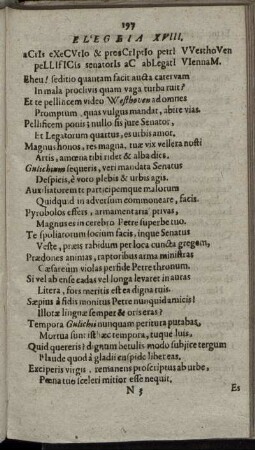 197
ELEGEIA XVIII.
aCrIs eXeCVtIo & prosCrIptIo petrI VVesthoVen
peLLIfICIs senatorIs aC abLegatI VIennaM.
Eheu! seditio quantam facit aucta catervam
In mala proclivis quam vaga turba ruit?
Et te pellincem video Westhoven ad omnes
Promptum, quas vulgus mandat, abire vias.
Pellificem ponis; nullo sis jure Senator,
Et Legatorum quartus, es urbis amor.
Magnus honos, res magna, tuæ vix vellera nosti
Artis, amœna tibi ridet & alba dies.
Gulichium sequeris, veri mandata Senatus
Despicis, è voto plebis & urbis agis.
Auxiliatorem te participemque malorum
Quidquid in adversum commoneare, facis.
Pyrobolos effers, armamentaria privas,
Magnus es in cerebro Petre superbe tuo.
Te spoliatorum socium facis, inque Senatus
Veste, præis rabidum per loca cuncta gregem,
Prædones animas, raptoribus arma ministras
Cæsareium violas perfide Petre thronum.
Si vel ab ense cadas vel longa levaret in auras
Litera, fors meritis est ea digna tuis.
Sæpius à fidis monitus Petre nuoquid amicis!
Illotæ linguæ semper & oris eras?
Tempora Gulichis nunquam peritura putabas,
Mortua sunt isthæc tempora, tuque luis,
Quid quereris? dignum betulis modo subjice tergum
Plaude quod à gladii cuspide liber eas.
Exciperis virgis, remanens proscriptus ab urbe,
Pœna tuo sceleri mitior esse nequit.
N 3
Es